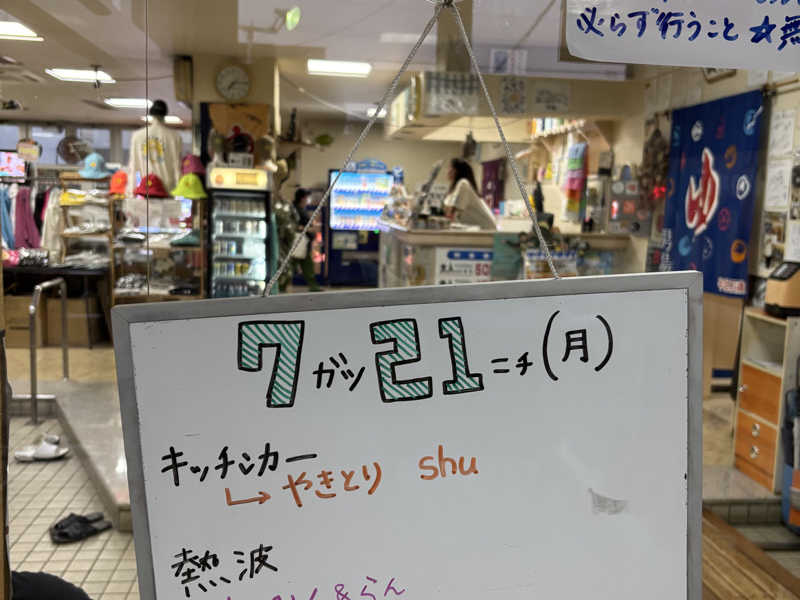 必らず行うこと ☆無
ゆ
7ガツ21ニチ(月)
キッチンカー
↳ やきとり shu
熱波
&らん